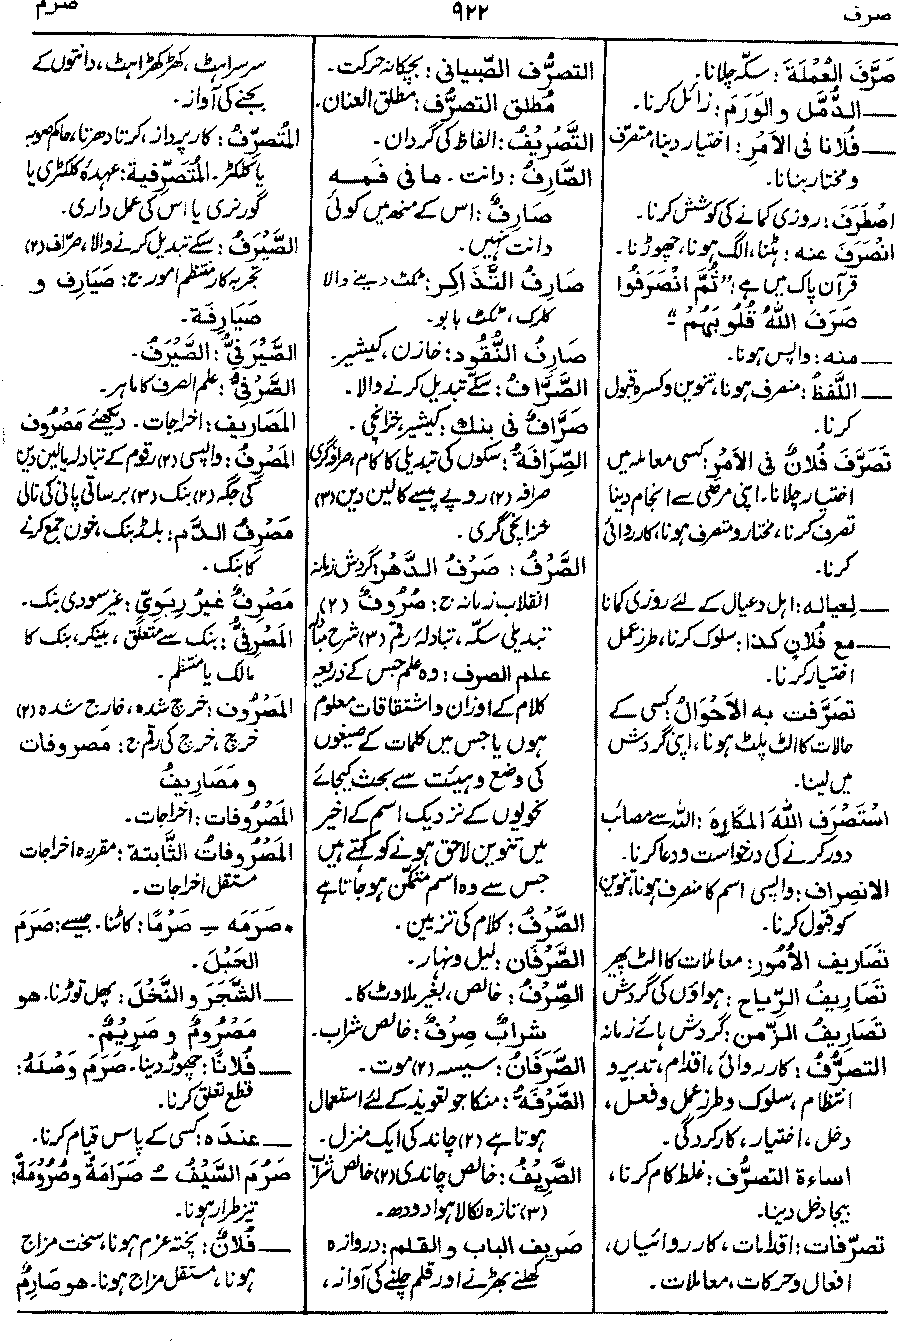 صرف
۹۲۲
صرم
صَرَّفَ العُمْلَةَ: سکّہ چلانا۔
— الدُّمَّلَ والوَرَمَ: زائل کرنا۔
— فُلانا فی الأمْرِ: اختیار دینا، متصرّف
و مختار بنانا۔
اصْطَرَفَ: روزی کمانے کی کوشش کرنا۔
انْصَرَفَ عنہ: ہٹنا، الگ ہونا، چھوڑنا۔
قرآن پاک میں ہے: "ثُمَّ انْصَرَفُوا
صَرَفَ اللہُ قُلُوبَہُمْ"
— منہ: واپس ہونا۔
— اللَّفظُ: منصرف ہونا، تنوین و کسرہ قبول
کرنا۔
تَصَرَّفَ فُلانٌ فی الأمْرِ: کسی معاملہ میں
اختیار چلانا۔ اپنی مرضی سے انجام دینا
تصرف کرنا، مختار و متصرف ہونا، کارروائی
کرنا۔
— لِعیالہ: اہل و عیال کے لئے روزی کمانا
— مع فُلانٍ کذا: سلوک کرنا، طرز عمل
اختیار کرنا۔
تَصَرَّفَت بہ الأحْوالُ: کسی کے
حالات کا الٹ پلٹ ہونا، اپنی گردش
میں لینا۔
اسْتَصْرَفَ اللہَ المَکارِہَ: اللہ سے مصائب
دور کرنے کی درخواست و دعا کرنا۔
الانصِراف: واپسی اسم کا منصرف ہونا، تنوین
کو قبول کرنا۔
تَصَارِیف الأُمُور: معاملات کا الٹ پھیر
تَصَارِیفُ الرِّیاح: ہواؤں کی گردش
تَصَارِیفُ الزَّمن: گردش ہائے زمانہ
التصرُّفُ: کارروائی، اقدام، تدبیر و
انتظام، سلوک و طرز عمل و فعل،
دخل، اختیار، کارکردگی۔
اساءۃ التصرُّف: غلط کام کرنا،
بیجا دخل دینا۔
تصرّفات: اقدامات، کارروائیاں،
افعال و حرکات، معاملات۔
التصرُّف الصِّبیانی: بچکانہ حرکت۔
مُطلق التصرُّف: مطلق العنان۔
التَّصْرِیْفُ: الفاظ کی گردان۔
الصَّارِفُ: دانت۔ ما فی فَمِہ
صارِفٌ: اس کے منھ میں کوئی
دانت نہیں۔
صَارِفُ التَّذَاکِر: ٹکٹ دینے والا
کلرک، ٹکٹ بابو۔
صَارِفُ النُّقُود: خازن، کیشیر۔
الصَّرَّافُ: سکّے تبدیل کرنے والا۔
صَرَّافٌ فی بنك: کیشیر، خزانچی۔
الصِّرَافَۃُ: سکوں کی تبدیلی کا کام، صرافگری
صرافہ (۲) روپے پیسے کا لین دین (۳)
خزانچی گری۔
الصَّرْفُ: صَرْفُ الدَّھْر: گردش زمانہ
انقلاب زمانہ ج: صُرُوفٌ (۲)
تبدیلی سکّہ، تبادلۂ رقم (۳) شرح مبادلہ
علم الصرف: وہ علم جس کے ذریعہ
کلام کے اوزان و اشتقاقات معلوم
ہوں یا جس میں کلمات کے صیغوں
کی وضع و ہیئت سے بحث کیجائے
نحویوں کے نزدیک اسم کے اخیر
میں تنوین لاحق ہونے کو کہتے ہیں
جس سے وہ اسم متمکّن ہو جاتا ہے
الصَّرْفُ: کلام کی تزیین۔
الصَّرْفان: لیل و نہار۔
الصِّرْفُ: خالص، بغیر ملاوٹ کا۔
شرابٌ صِرْفٌ: خالص شراب۔
الصَّرَفانُ: سیسہ (۲) موت۔
الصَّرْفَۃُ: منکا جو تعویذ کے لئے استعمال
ہوتا ہے (۲) چاند کی ایک منزل۔
الصَّرِیْفُ: خالص چاندی (۲) خالص شراب
(۳) تازہ نکالا ہوا دودھ۔
صَرِیفُ الباب والقلم: دروازہ
کھلنے بھڑنے اور قلم چلنے کی آواز،
سرسراہٹ، کھڑکھڑاہٹ، دانتوں کے
بجنے کی آواز۔
المُتصرِّفُ: کارپرداز، کرتا دھرتا، حاکم صوبہ
یا کلکٹر۔ المُتَصَرِّفیۃ: عہدۂ کلکٹری یا
گورنری یا اس کی عمل داری۔
الصَّیْرَفُ: سکے تبدیل کرنے والا، صرّاف (۲)
تجربہ کار منتظم امور ج: صَیَارِف و
صَیَارِفَة۔
الصَّیْرَفِیُّ: الصَّیْرَفُ۔
الصَّرْفِیُّ: علم الصرف کا ماہر۔
المَصَارِیف: اخراجات۔ دیکھئے مَصْرُوف
المَصْرِفُ: واپسی (۲) رقوم کے تبادلہ یا لین دین
کی جگہ (۲) بنک (۳) برساتی پانی کی نالی
مَصْرِفُ الدَّم: بلڈ بنک، خون جمع کرنے
کا بنک۔
مَصْرِفٌ غیرُ رِبَوِیٍّ: غیر سودی بنک۔
المَصْرِفِیُّ: بنک سے متعلق، بینکر، بنک کا
مالک یا منتظم۔
المَصْرُوف: خرچ شدہ، خارج شدہ (۲)
خرچ، خرچ کی رقم ج: مصروفات
و مَصَارِیفُ
المَصْرُوفات: اخراجات۔
المَصْرُوفاتُ الثَّابتة: مقررہ اخراجات
مستقل اخراجات۔
• صَرَمَہ ــِ صَرْمًا: کاٹنا۔ جیسے: صَرَمَ
الحَبْلَ۔
— الشَّجَرَ والنَّخْلَ: پھل توڑنا۔ ھو
مَصْرُومٌ و صَرِیْمٌ۔
— فُلانًا: چھوڑ دینا۔ صَرَمَ وَصْلَہٗ:
قطع تعلق کرنا۔
— عندہ: کسی کے پاس قیام کرنا۔
صَرُمَ السَّیْفُ ــُ صَرَامَةً وصُرُوْمَةً:
تیز طرار ہونا۔
— فُلانٌ: پختہ عزم ہونا، سخت مزاج
ہونا، مستقل مزاج ہونا۔ ھو صارِمٌ